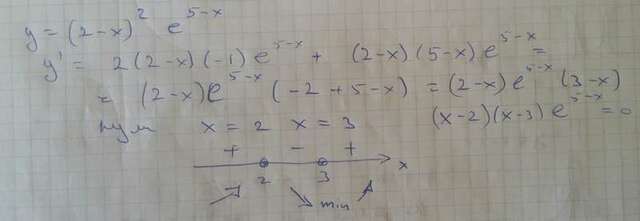 y = (2-x)² e^{5-x}
y' = 2(2-x)(-1)e^{5-x} + (2-x)(5-x)e^{5-x} =
= (2-x)e^{5-x} (-2+5-x) = (2-x)e^{5-x} (3-x)
(x-2)(x-3)e^{5-x} = 0
нули x = 2 x = 3
+ - +
2 3 x
min